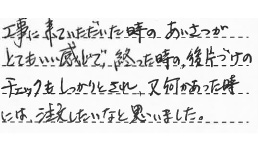 工事に来ていただいた時の あいさつが
とてもいい感じで、終った時の、後片づけの
チェックもしっかりとされ、又何かあった時
には、注文したいなと思いました。